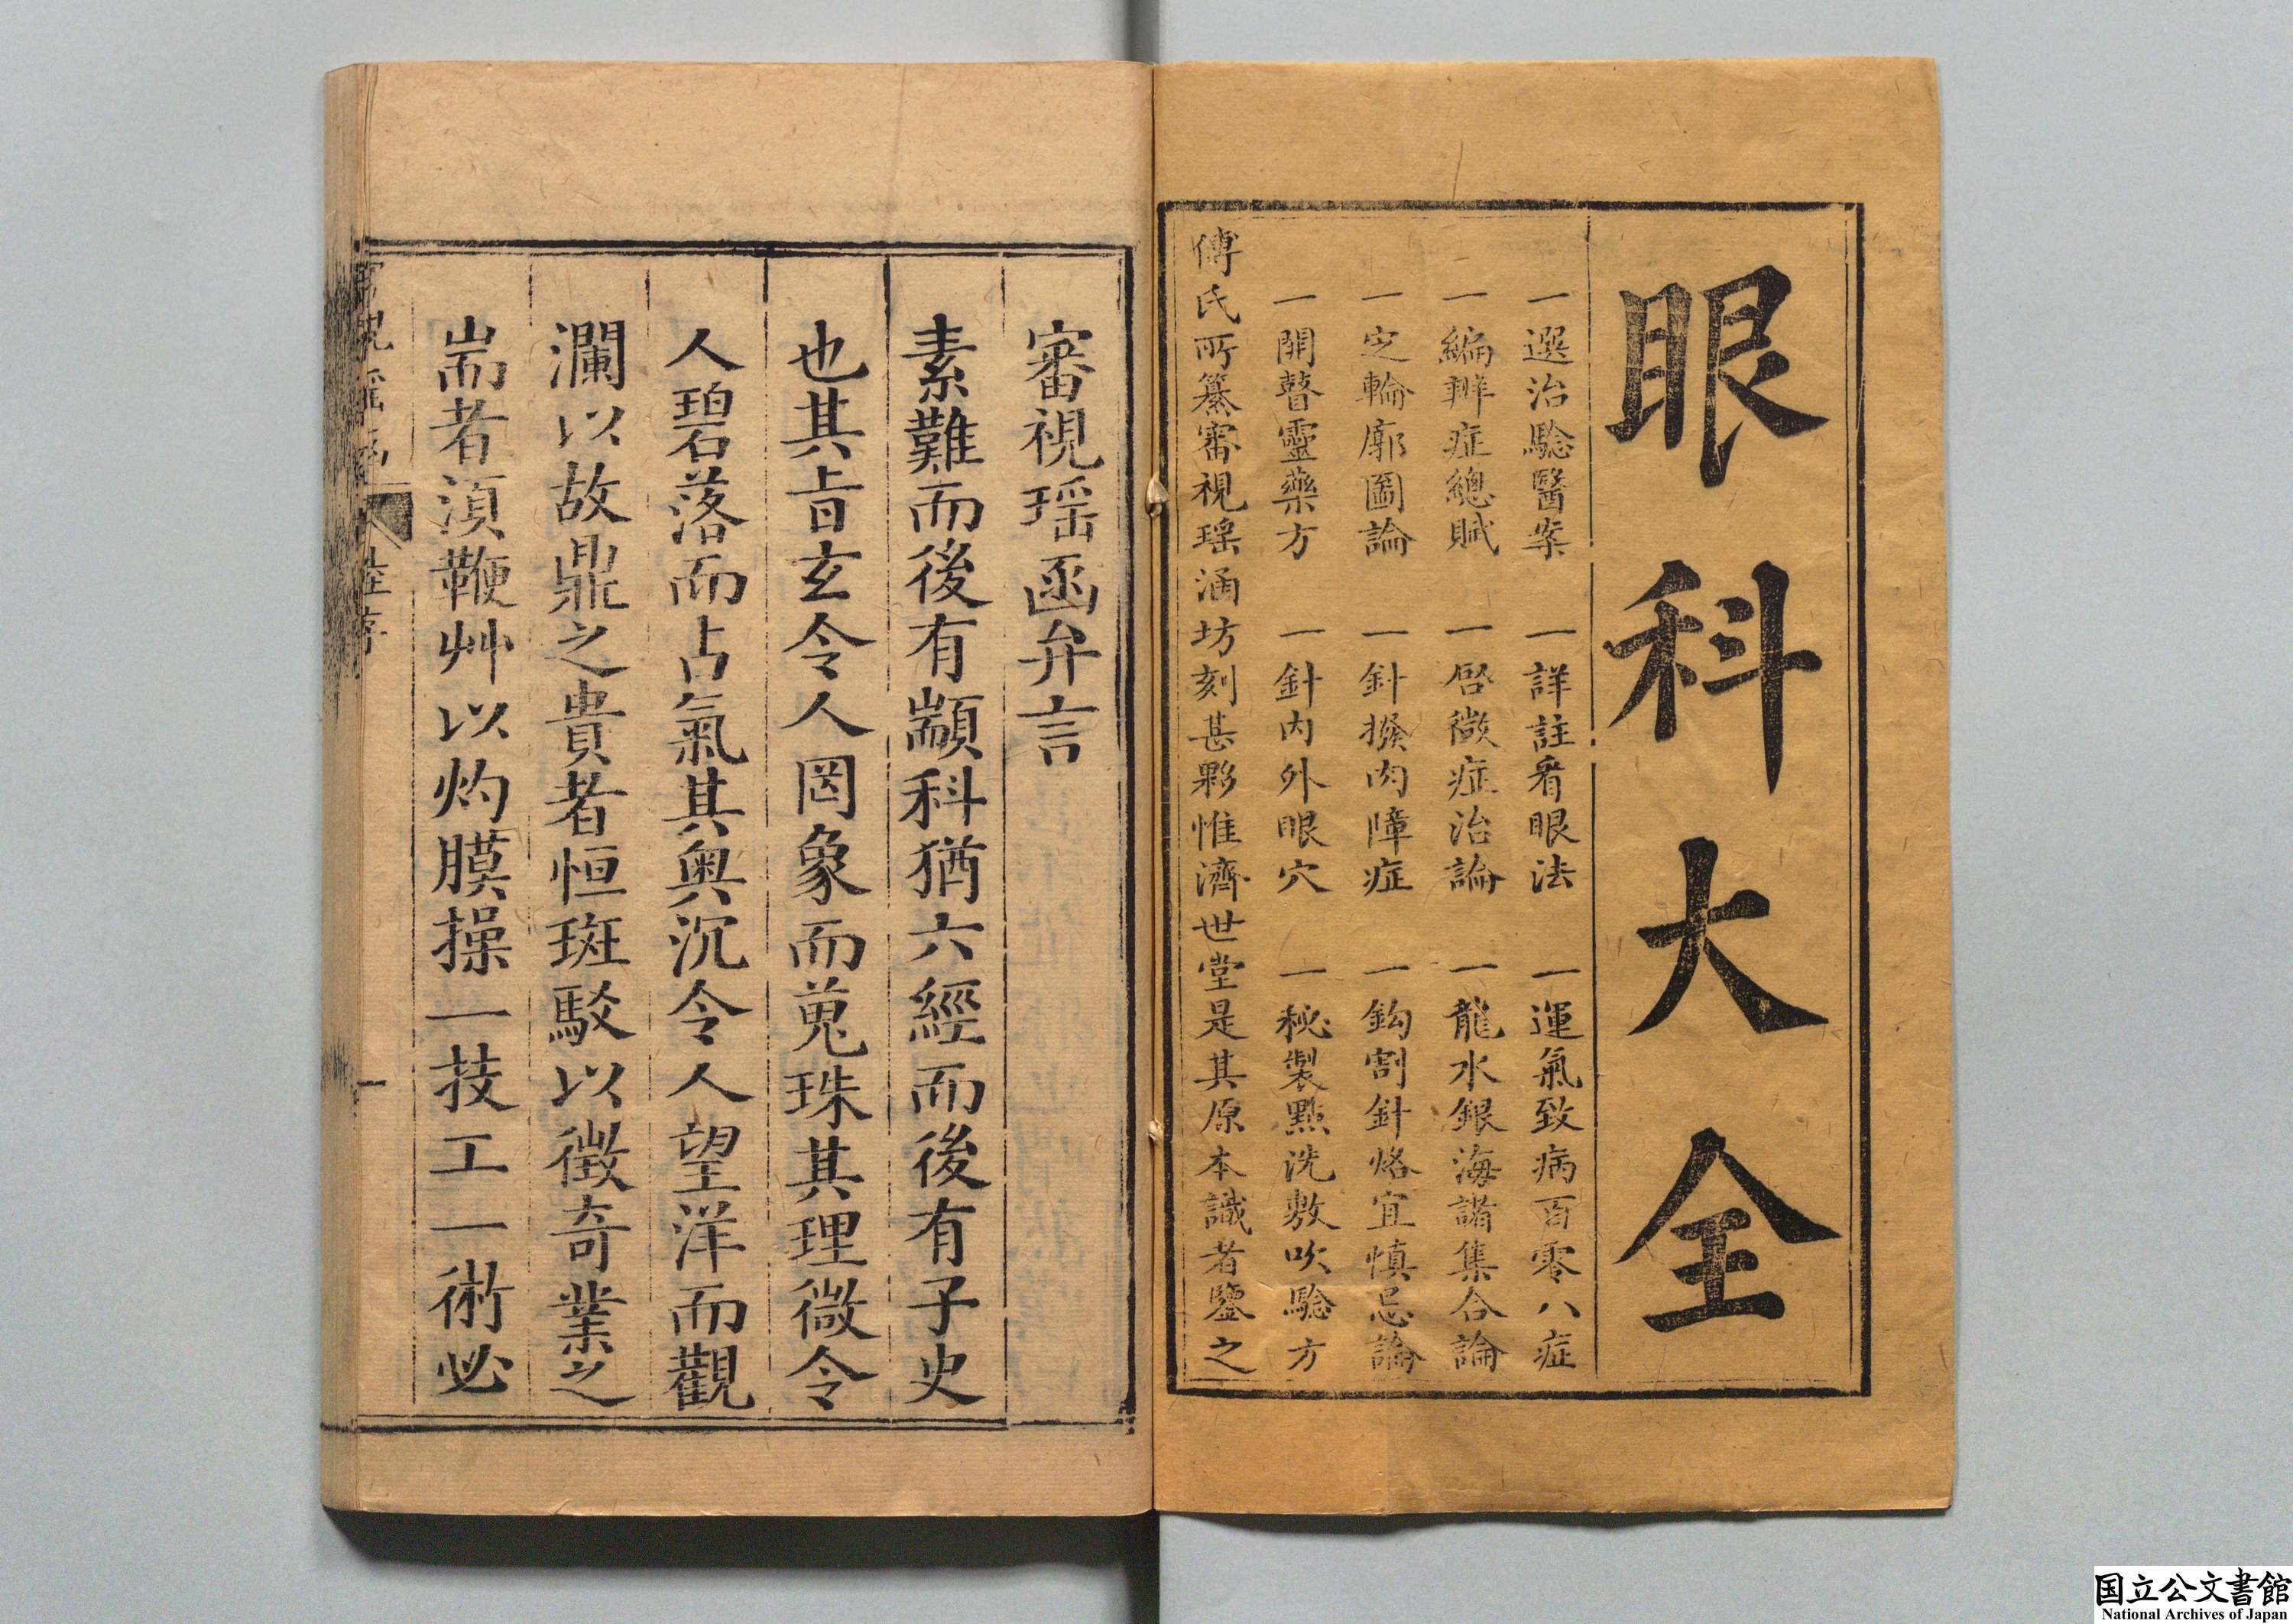 眼科大全
一選治騐醫案　一詳註看眼法　一運氣致病百零八症
一編辨症總賦　一啓微症治論　一龍水銀海諸集合論
一定輪廓圖論　一針撥內障症　一鈎割針烙宜慎忌論
一開瞽靈藥方　一針內外眼穴　一秘製點洗敷吹騐方
傅氏所纂審視瑶涵坊刻甚夥惟濟世堂是其原本識者鑒之
審視瑶函弁言
素難而後有顓科猶六經而後有子史
也其旨玄令人罔象而蒐珠其理微令
人碧落而占氣其奥沉令人望洋而觀
瀾以故鼎之貴者恒斑駁以徵奇業之
耑者湏鞭艸以灼膜操一技工一術必
陸序
一
国立公文書館
National Archives of Japan